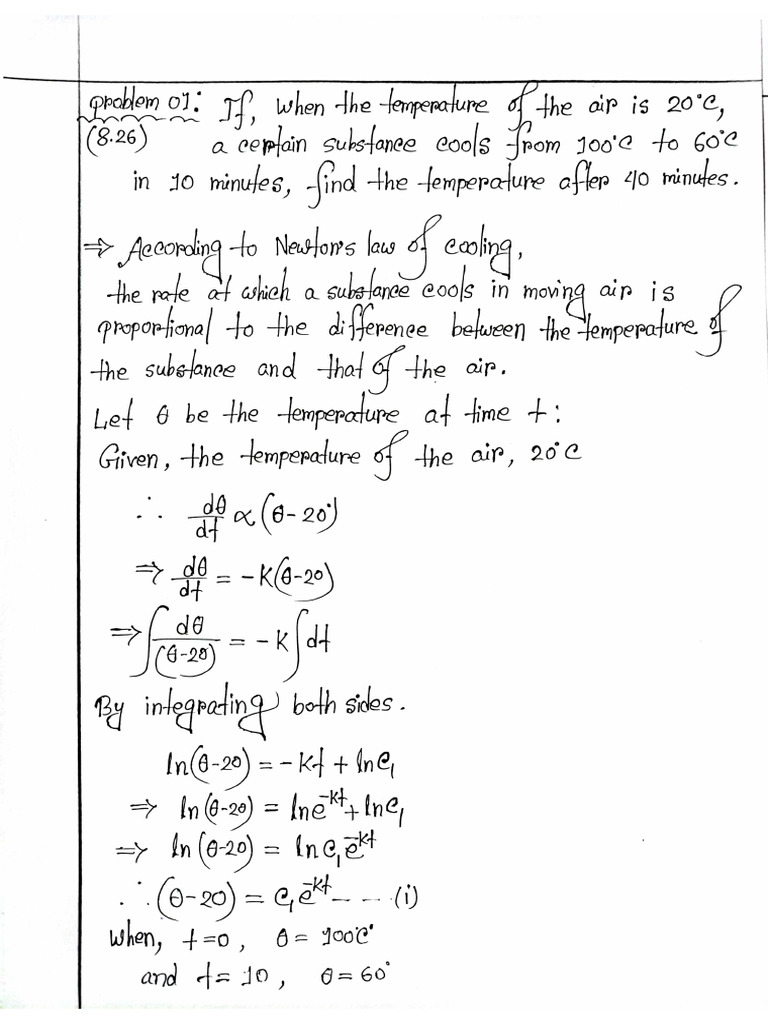 problem 01: If, when the temperature of the air is 20°C,
(8.26) a certain substance cools from 100°C to 60°C
in 10 minutes, find the temperature after 40 minutes.
⇒ According to Newton's law of cooling,
the rate at which a substance cools in moving air is
proportional to the difference between the temperature of
the substance and that of the air.
Let θ be the temperature at time t:
Given, the temperature of the air, 20°C
∴ dθ/dt ∝ (θ-20°)
⇒ dθ/dt = -K(θ-20)
⇒ ∫ dθ/(θ-20) = -K ∫ dt
By integrating both sides.
ln(θ-20) = -Kt + lnC₁
⇒ ln(θ-20) = lne^-Kt + lnC₁
⇒ ln(θ-20) = lnC₁e^-Kt
∴ (θ-20) = C₁e^-Kt --- (i)
when, t=0, θ = 100C°
and t= 10, θ = 60°